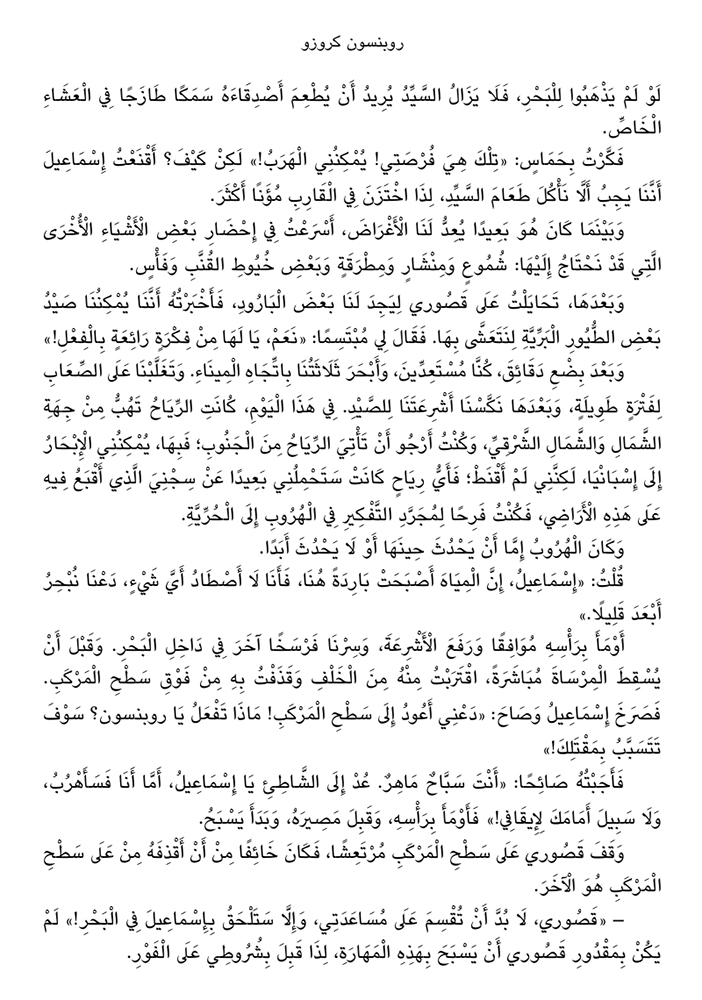 روبنسون كروزو
لَوْ لَمْ يَذْهَبُوا لِلْبَحْرِ، فَلَا يَزَالُ السَّيِّدُ يُرِيدُ أَنْ يُطْعِمَ أَصْدِقَاءَهُ سَمَكًا طَازَجًا فِي الْعَشَاءِ
الْخَاصِّ.
فَكَّرْتُ بِحَمَاسٍ: «تِلْكَ هِيَ فُرْصَتِي! يُمْكِنُنِي الْهَرَبُ!» لَكِنْ كَيْفَ؟ أَقْنَعْتُ إِسْمَاعِيلَ
أَنَّنَا يَجِبُ أَلَّا نَأْكُلَ طَعَامَ السَّيِّدِ، لِذَا اخْتَزَنَ فِي الْقَارِبِ مُؤَنًا أَكْثَرَ.
وَبَيْنَمَا كَانَ هُوَ بَعِيدًا يُعِدُّ لَنَا الْأَغْرَاضَ، أَسْرَعْتُ فِي إِحْضَارِ بَعْضِ الْأَشْيَاءِ الْأُخْرَى
الَّتِي قَدْ نَحْتَاجُ إِلَيْهَا: شُمُوعٍ وَمِنْشَارٍ وَمِطْرَقَةٍ وَبَعْضِ خُيُوطِ الْقُنَّبِ وَفَأْسٍ.
وَبَعْدَهَا، تَحَايَلْتُ عَلَى قَصُورِي لِيَجِدَ لَنَا بَعْضَ الْبَارُودِ، فَأَخْبَرْتُهُ أَنَّنَا يُمْكِنُنَا صَيْدُ
بَعْضِ الطُّيُورِ الْبَرِّيَّةِ لِنَتَعَشَّى بِهَا. فَقَالَ لِي مُبْتَسِمًا: «نَعَمْ، يَا لَهَا مِنْ فِكْرَةٍ رَائِعَةٍ بِالْفِعْلِ!»
وَبَعْدَ بِضْعِ دَقَائِقَ، كُنَّا مُسْتَعِدِّينَ، وَأَبْحَرَ ثَلَاثَتُنَا بِاتِّجَاهِ الْمِينَاءِ. وَتَغَلَّبْنَا عَلَى الصِّعَابِ
لِفَتْرَةٍ طَوِيلَةٍ، وَبَعْدَهَا نَكَّسْنَا أَشْرِعَتَنَا لِلصَّيْدِ. فِي هَذَا الْيَوْمِ، كَانَتِ الرِّيَاحُ تَهُبُّ مِنْ جِهَةِ
الشَّمَالِ وَالشَّمَالِ الشَّرْقِيِّ، وَكُنْتُ أَرْجُو أَنْ تَأْتِيَ الرِّيَاحُ مِنَ الْجَنُوبِ؛ فَبِهَا، يُمْكِنُنِي الْإِبْحَارُ
إِلَى إِسْبَانْيَا، لَكِنَّنِي لَمْ أَقْنَطْ؛ فَأَيُّ رِيَاحٍ كَانَتْ سَتَحْمِلُنِي بَعِيدًا عَنْ سِجْنِيَ الَّذِي أَقْبَعُ فِيهِ
عَلَى هَذِهِ الْأَرَاضِي، فَكُنْتُ فَرِحًا لِمُجَرَّدِ التَّفْكِيرِ فِي الْهُرُوبِ إِلَى الْحُرِّيَّةِ.
وَكَانَ الْهُرُوبُ إِمَّا أَنْ يَحْدُثَ حِينَهَا أَوْ لَا يَحْدُثَ أَبَدًا.
قُلْتُ: «إِسْمَاعِيلُ، إِنَّ الْمِيَاهَ أَصْبَحَتْ بَارِدَةً هُنَا، فَأَنَا لَا أَصْطَادُ أَيَّ شَيْءٍ، دَعْنَا نُبْحِرُ
أَبْعَدَ قَلِيلًا.»
أَوْمَأَ بِرَأْسِهِ مُوَافِقًا وَرَفَعَ الْأَشْرِعَةَ، وَسِرْنَا فَرْسَخًا آخَرَ فِي دَاخِلِ الْبَحْرِ. وَقَبْلَ أَنْ
يُسْقِطَ الْمِرْسَاةَ مُبَاشَرَةً، اقْتَرَبْتُ مِنْهُ مِنَ الْخَلْفِ وَقَذَفْتُ بِهِ مِنْ فَوْقِ سَطْحِ الْمَرْكَبِ.
فَصَرَخَ إِسْمَاعِيلُ وَصَاحَ: «دَعْنِي أَعُودُ إِلَى سَطْحِ الْمَرْكَبِ! مَاذَا تَفْعَلُ يَا روبنسون؟ سَوْفَ
تَتَسَبَّبُ بِمَقْتَلِكَ!»
فَأَجَبْتُهُ صَائِحًا: «أَنْتَ سَبَّاحٌ مَاهِرٌ. عُدْ إِلَى الشَّاطِئِ يَا إِسْمَاعِيلُ، أَمَّا أَنَا فَسَأَهْرُبُ،
وَلَا سَبِيلَ أَمَامَكَ لِإِيقَافِي!» فَأَوْمَأَ بِرَأْسِهِ، وَقَبِلَ مَصِيرَهُ، وَبَدَأَ يَسْبَحُ.
وَقَفَ قَصُورِي عَلَى سَطْحِ الْمَرْكَبِ مُرْتَعِشًا، فَكَانَ خَائِفًا مِنْ أَنْ أَقْذِفَهُ مِنْ عَلَى سَطْحِ
الْمَرْكَبِ هُوَ الْآخَرَ.
– «قَصُورِي، لَا بُدَّ أَنْ تُقْسِمَ عَلَى مُسَاعَدَتِي، وَإِلَّا سَتَلْحَقُ بِإِسْمَاعِيلَ فِي الْبَحْرِ!» لَمْ
يَكُنْ بِمَقْدُورِ قَصُورِي أَنْ يَسْبَحَ بِهَذِهِ الْمَهَارَةِ، لِذَا قَبِلَ بِشُرُوطِي عَلَى الْفَوْرِ.